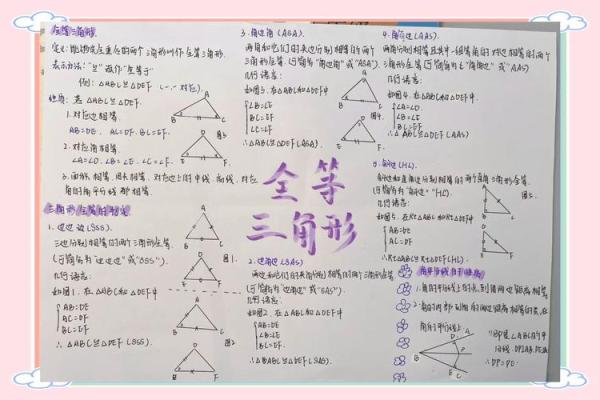 全等三角形
定义：能够完全重合的两个三角形叫作全等三角形.
表示方法："≌" 读作"全等于"
例：△ABC≌△DEF
性质：若 △ABC≌△DEF
1. 对应边相等.
AB=DE, AC=DF, BC=EF.
2. 对应角相等.
∠A=∠D, ∠B=∠E, ∠C=∠F.
3. 面积相等, 周长相等, 对应边上的中线, 高线, 对应
角的角平分线都相等.
三角形全等的判定
1. 边边边 (SSS).
三边分别相等的两个三角形全等.
(可简写为"边边边"或"SSS").
几何语言:
如图1. 在△ABC和△DEF中
AB=DE
AC=DF
BC=EF
∴ △ABC≌△DEF (SSS).
图1
图2
全等
三角形
2. 边角边 (SAS)
两边和它们的夹角分别相等的两个三角形全等
(可简写为"边角边"或"SAS").
几何语言:
如图2. 在△ABC和△DEF中
AB=DE
∠B=∠E
BC=EF
∴ △ABC≌△DEF (SAS).
3. 角边角 (ASA).
两角和它们的夹边分别相等的两个
三角形全等 (可简写为"角边角"或"ASA").
几何语言:
如图3. 在△ABC和△DEF中
∠B=∠E
BC=EF
∠C=∠F
∴ △ABC≌△DEF (ASA).
图3
4. 角角边 (AAS)
两角分别相等且其中一组等角的对边相等的两个
三角形全等 (可简写为"角角边"或"AAS")
几何语言:
如图4. 在△ABC和△DEF中
∠A=∠D
∠B=∠E
BC=EF
∴ △ABC≌△DEF (AAS)
图4
5. (HL).
斜边和直角边分别相等的两个直角三角形全等.
几何语言:
如图5. 在Rt△ABC和Rt△DEF中
AB=DE
AC=DF
∴ Rt△ABC≌Rt△DEF (HL).
图5
1. 角的平分线上的点到角两边距离相等
2. 角的内部到角的两边距离相等的点在
角的平分线上
∴ DP=PE